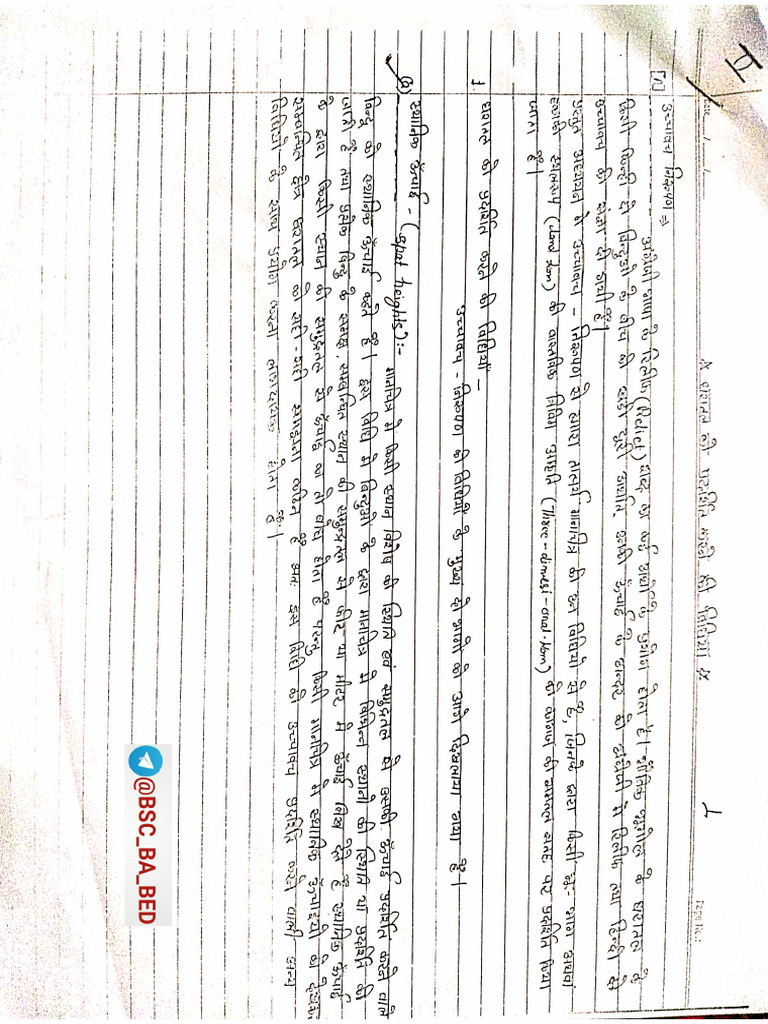 II
Date / /
Page No.:
* धरातल को प्रदर्शित करने की विधियाँ *
[A] उच्चावच निरूपण ⇒
अंग्रेजी भाषा के रिलीफ (Relief) शब्द का कई अर्थों में प्रयोग होता है। भौतिक भूगोल में धरातल के
किन्हीं दो बिन्दुओं के बीच की खड़ी दूरी अर्थात् उनकी ऊँचाई के अन्तर को अंग्रेजी में रिलीफ तथा हिन्दी में
उच्चावच की संज्ञा दी जाती है।
प्रस्तुत अध्ययन में उच्चावच - निरूपण से हमारा तात्पर्य मानचित्र की उन विधियों से है, जिनके द्वारा किसी भू-भाग अथवा
इसकी स्थलरूप (Land form) की वास्तविक त्रिविम आकृति (Three-dimensi-onal-form) को कागज के समतल सतह पर प्रदर्शित किया
जाता है।
1. धरातल को प्रदर्शित करने की विधियाँ -
उच्चावच - निरूपण की विधियों के मुख्य दो भागों को आगे दिखलाया गया है।
(a) स्थानिक ऊँचाई - (spot heights) :- मानचित्र में किसी स्थान विशेष की स्थिति एवं समुद्रतल से उसकी ऊँचाई प्रदर्शित करने वाले
बिन्दु को स्थानिक ऊँचाई कहते है। इस विधि में बिन्दुओं के द्वारा मानचित्र में विभिन्न स्थानों की स्थिति को प्रदर्शित की
जाती है तथा प्रत्येक बिन्दु के समक्ष, सम्बन्धित स्थान की समुद्रतल से फीट या मीटर में ऊँचाई लिख देते है स्थानिक ऊँचाई
के द्वारा किसी स्थान की समुद्रतल से ऊँचाई का तो बोध होता है परन्तु किसी मानचित्र में स्थानिक ऊँचाइयों को देखकर
सम्बन्धित क्षेत्र धरातल को सही - सही समझना कठिन है अतः इस विधि को उच्चावच प्रदर्शित करने वाली अन्य
विधियों के साथ प्रयोग करना लाभदायक होता है।
@BSC_BA_BED